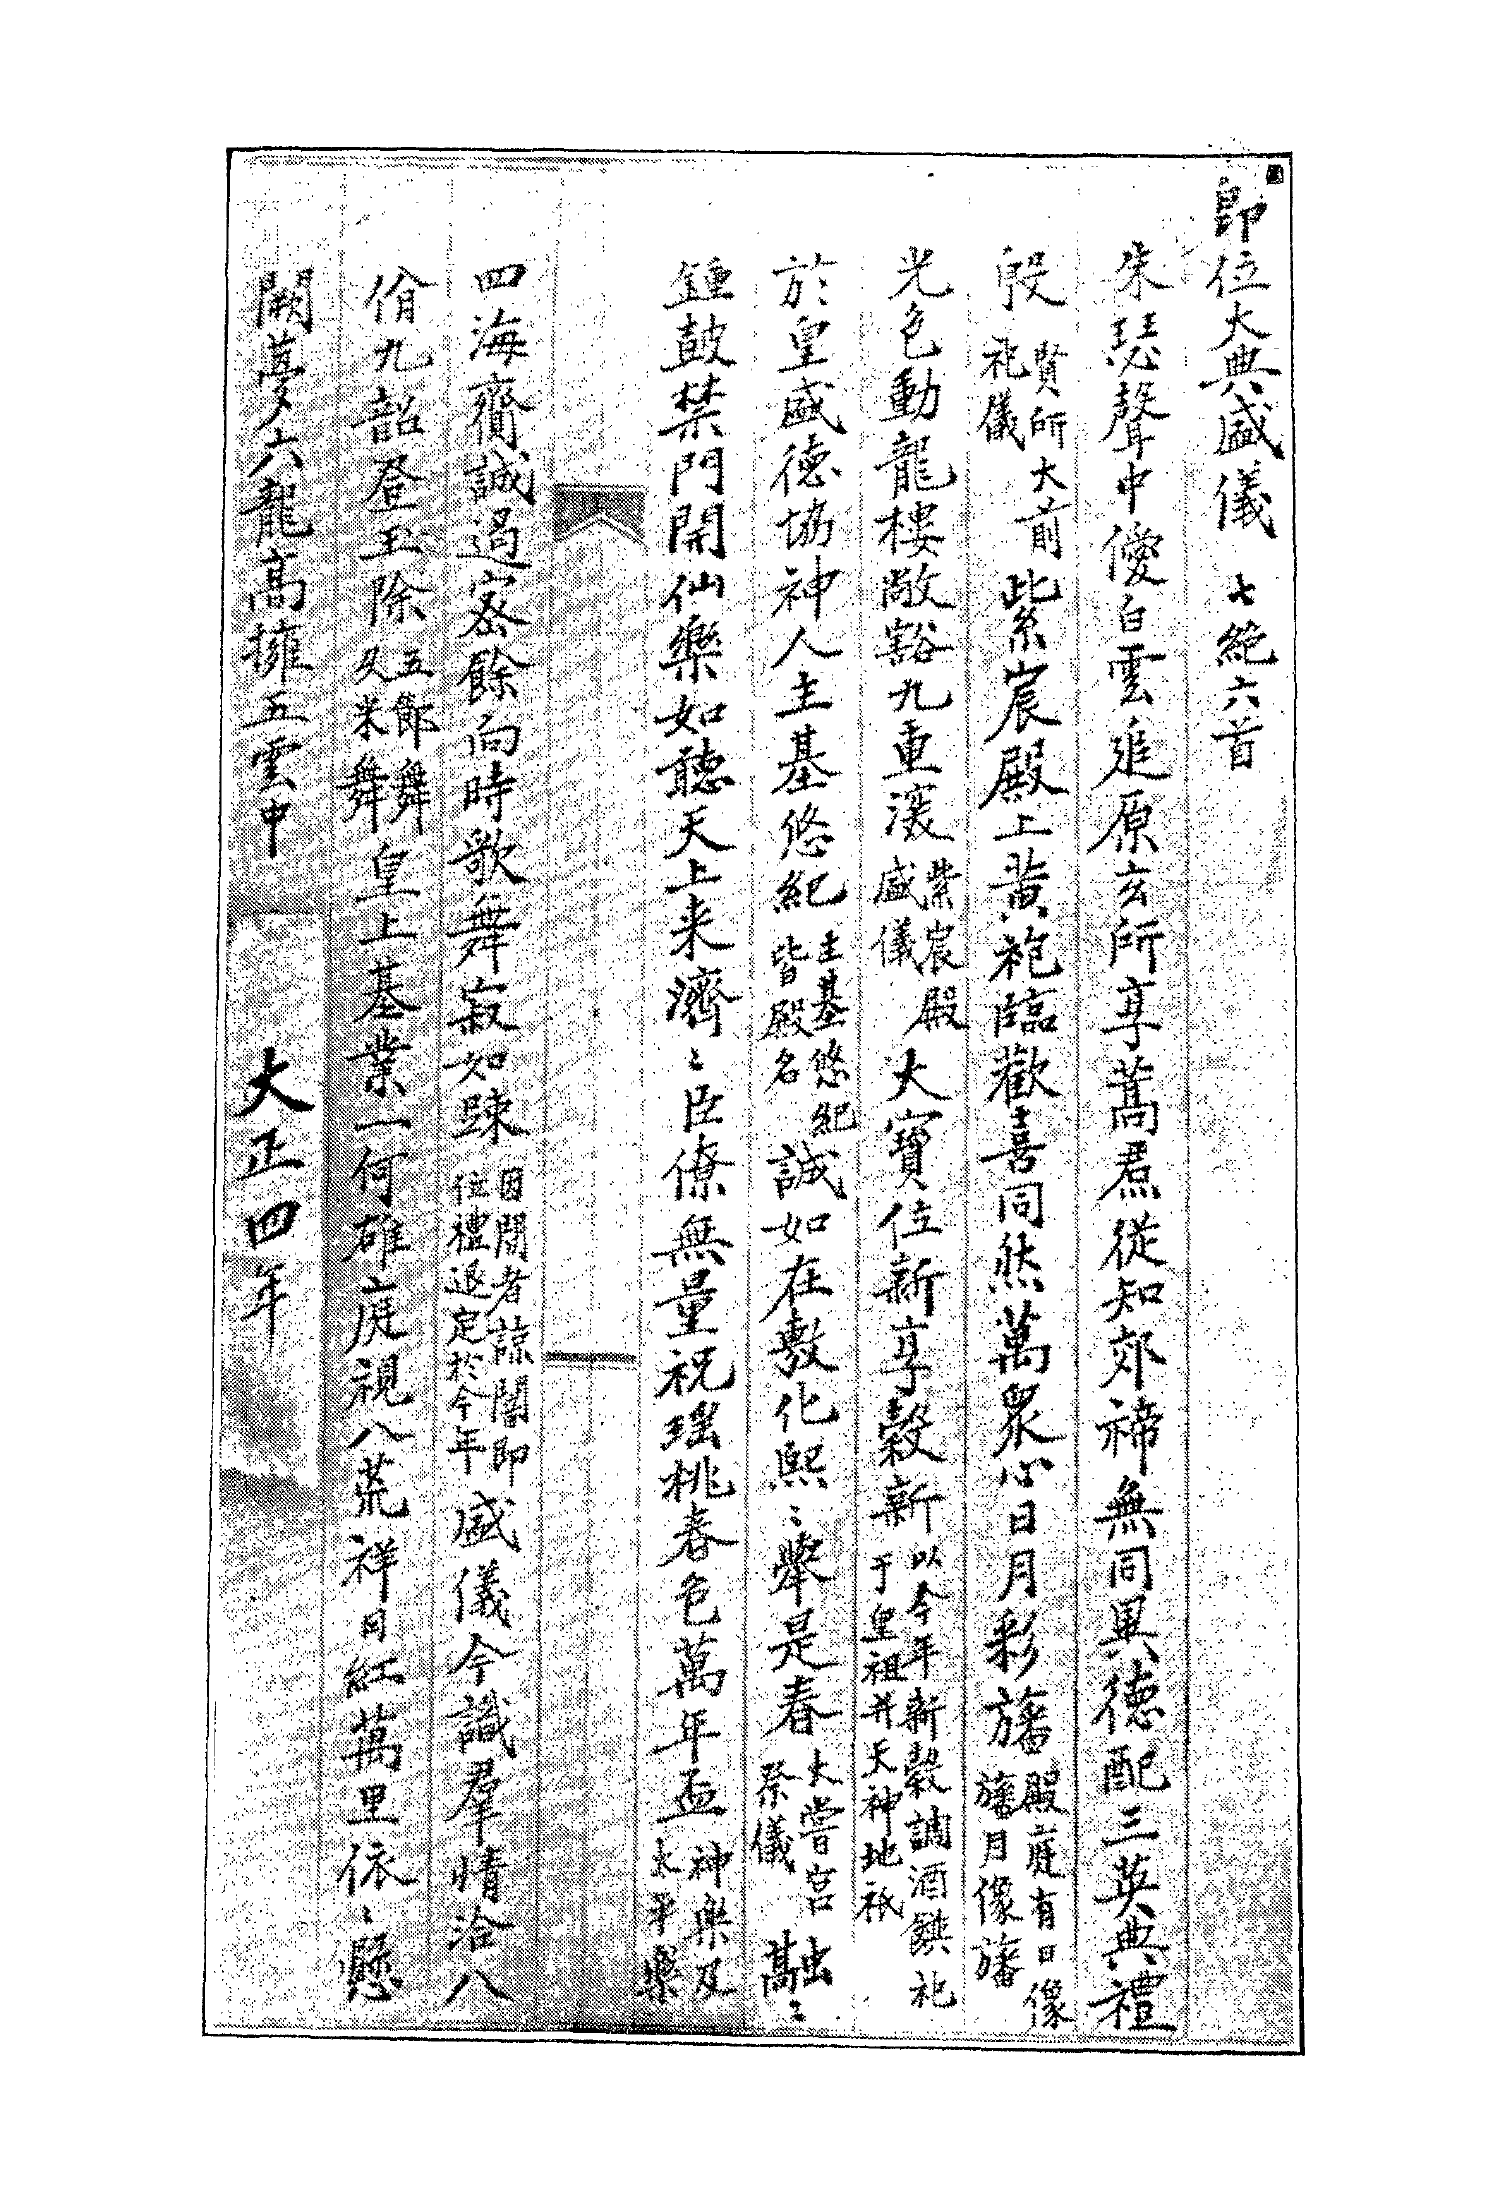 即位大典盛儀 七絶六首
朱瑟聲中僾白雲追原玄所享蒿焄從知郊禘無同異德配三英典禮
殷 賢所大前礼儀 紫宸殿上黄袍臨歡喜同然萬衆心日月彩旛 殿庭有日像旛月像旛
光色動龍樓敞豁九重深 紫宸殿盛儀 大寶位新享穀新 以今年新穀調酒饌祀于皇祖并天神地祇
於皇盛德協神人主基悠紀 主基悠紀皆殿名 誠如在敷化熙〻擧是春 大嘗宮祭儀 融〻
鍾鼓禁門開仙樂如聽天上来濟〻臣僚無量祝瑤桃春色萬年盃 神樂及太平樂
四海齎誠遏密餘向時歌舞寂如疎 因闇者諒闇即位禮退定於今年 盛儀今識羣情洽八
佾九韶登玉除 五節舞及米舞 皇上基業一何確庭視八荒祥日紅萬里依〻懸
闕夢六龍高擁五雲中 大正四年